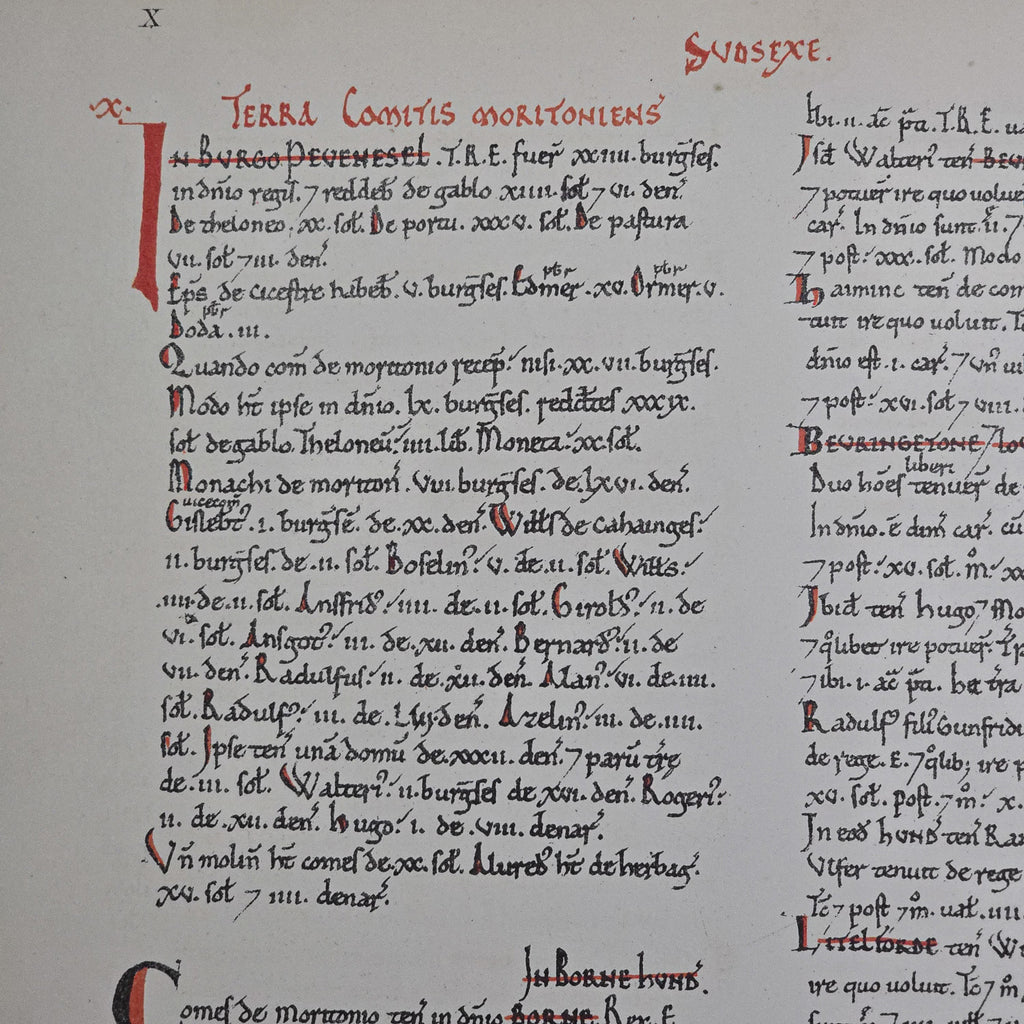 X
SUDSEXE.
.X. TERRA COMITIS MORITONIENS'
IN BURGO PEVENESEL . T.R.E. fuer̃ xxiiii. burgs̄es.
in dn̄io regis. ⁊ reddeb̃ de gablo xiiii. sol̃ ⁊ vi. den̄.
De theloneo. xx. sol̃. De portu. xxxv. sol̃. De pastura
vii. sol̃ ⁊ iii. den̄.
Ep̄s de cicestre habeb̃. v. burgs̄es. Edmer pb̄r .xv. Ormer pb̄r. v.
Doda pb̄r. iii.
Quando com̃ de moritonio recep̃: nisi. xx. vii. burgs̄es.
Modo ht̄ ipse in dn̄io. lx. burgs̄es. redd̄tes xxxix.
sol̃ de gablo. Theloneu̅: iiii. lib̃. Moneta: xx. sol̃.
Monachi de moriton̄. viii. burgs̄es. de. lxvi. den̄.
Gislebt̄ vicecom̃. i. burgs̄e. de. xx. den̄. Witl̄s de cahainges:
ii. burgs̄es. de. ii. sol̃. Boselin': v. de. ii. sol̃. Witl̄s:
.iiii. de. ii. sol̃. Ansfrid': iiii. de. ii. sol̃. Girold': ii. de
vi. sol̃. Ansgot': iii. de. xii. den̄. Bernard': ii. de
vii. den̄. Radulfus: ii. de. xii. den̄. Alan': vi. de. iiii.
sol̃. Radulf': iii. de. den̄. Azelin': iii. de. iiii.
sol̃. Ipse ten̄ unā domū de. xxxii. den̄. ⁊ parū tr̄ę
de. iii. sol̃. Walteri': ii. burgs̄es de xvi. den̄. Rogeri':
ii. de. xii. den̄. hugo: i. de. viii. denar̃.
Vn̄ molin̄ ht̄ comes de. xx. sol̃. Alured' ht̄ de herbag̃.
xv. sol̃ ⁊ iiii. denar̃.
IN BORNE HUND'.
Comes de moritonio ten̄ in dn̄io BORNE. Rex. E
Ibi. ii. ac̄ p̃ti. T.R.E.
Isd̄ Walteri' ten̄
⁊ potuer̃ ire quo
car̃. In dn̄io sunt. ii. ⁊
⁊ post: xxx. sol̃. Modo
haiminc ten̄ de
tuit ire quo voluit.
dn̄io est. i. car̃. ⁊ un̄
⁊ post: xvi. sol̃ ⁊ viii.
BEVRINGETONE ⁊
Duo hōes liberi tenuer̃ de
In dn̄io. ē dim̃ car̃. cū
⁊ post: xv. sol̃. m̊:
Ibid̄ ten̄ hugo ⁊
⁊ q̊libet ire potuer̃.
⁊ ibi. i. ac̄ p̃ti. hec tr̄a
Radulf' fili' Gunfridi
de rege. E. ⁊ q̊lib; ire
xv. sol̃. post. ⁊ m̊: x.
In eod̄ HUND' ten̄
Vlfer tenuit de rege
Tc̄ ⁊ post ⁊ m̊. ual̃. iiii.
LITELFORDE ten̄
ire quo voluit. Tc̄ ⁊ m̊